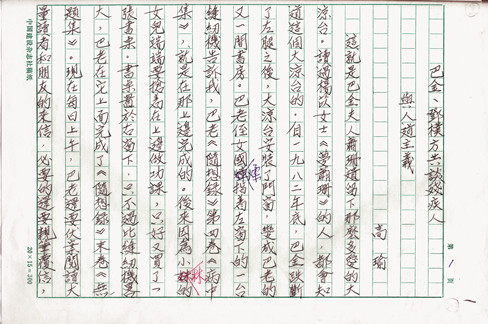 巴金、鄧樸方共談殘疾人
與人道主義
高瑜
這就是巴金夫人蕭珊遺留下那麼多愛的大
涼台。讀過楊苡女士《夢蕭珊》的人,都會知
道這個大涼台的。自一九八二年底,巴金跌斷
了左腿之後,大涼台安裝了門窗,變成巴老的
又一間書房。巴老侄女國煣指着左窗下的一台
縫紉機告訴我,巴老《隨想錄》第四卷《病中
集》,就是在那上邊完成的。後來因為小林的
女兒端端要搶高在上邊做功課,只好又買了一
張書桌。書桌置於右窗下,只不過比縫紉機略
大,巴老在它上面完成了《隨想錄》末卷《無
題集》。現在每日上午,巴老還要伏案閱讀大
量讀者和朋友的來信,必要的還要親筆覆信,
第1頁
中國建設雜志社稿紙
20×15=300